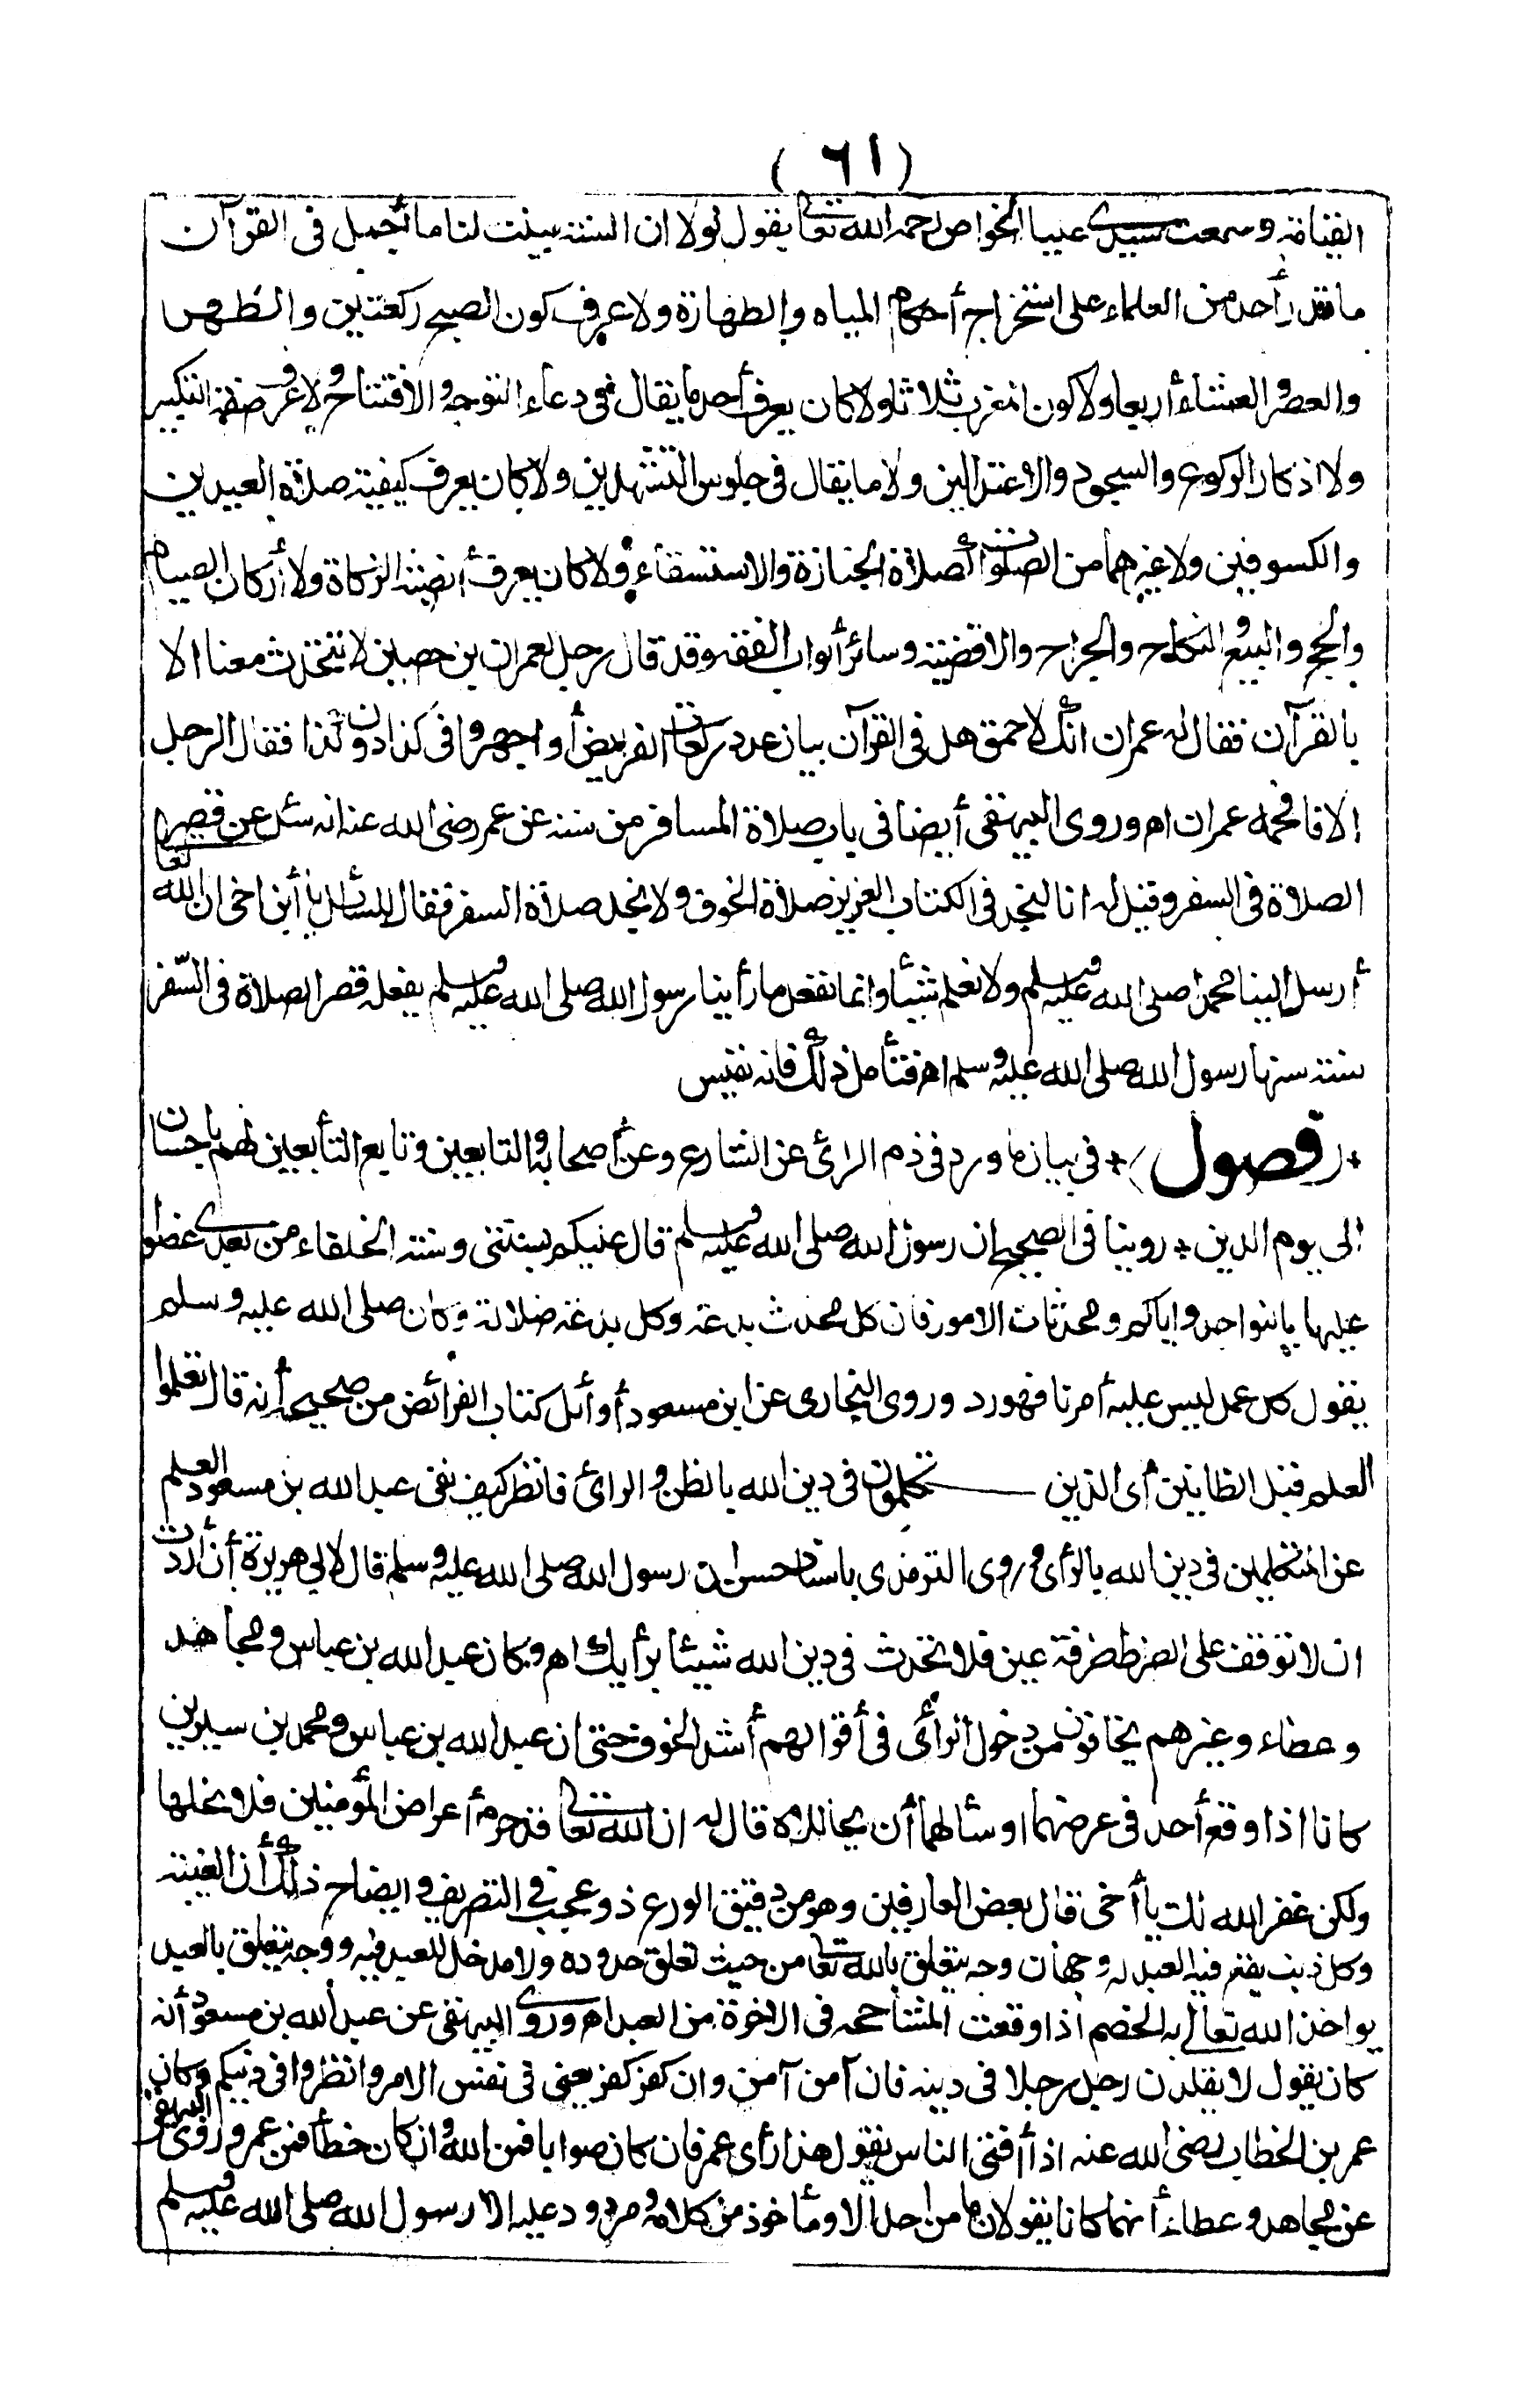 (٦١)
القيامة وسمعت سيدي عليا الخواص رحمه الله تعالى يقول لولا ان السنة بينت لنا ما أجمل في القرآن
ما قدر أحد من العلماء على استخراج أحكام المياه والطهارة ولا عرف كون الصبح ركعتين والظهر
والعصر والعشاء أربعا ولا كون المغرب ثلاثا ولا كان يعرف أحد ما يقال في دعاء التوجه والافتتاح ولا عرف صفة التكبير
ولا اذكار الركوع والسجود والاعتدالين ولا ما يقال في جلوس التشهدين ولا كان يعرف كيفية صلاة العيدين
والكسوفين ولا غيرهما من الصلوات كصلاة الجنازة والاستسقاء ولا كان يعرف أنصبة الزكاة ولا أركان الصيام
والحج والبيع والنكاح والجراح والاقضية وسائر أبواب الفقه وقد قال رجل لعمران بن حصين لا تتحدث معنا الا
بالقرآن فقال له عمران انك لاحمق هل في القرآن بيان عدد ركعات الفرائض أو اجهروا في كذا دون كذا فقال الرجل
لا فافحمه عمران اه وروى البيهقى أيضا في باب صلاة المسافر من سننه عن عمر رضى الله عنه انه سئل عن قصر
الصلاة في السفر وقيل له انا لنجد في الكتاب العزيز صلاة الخوف ولا نجد صلاة السفر فقال للسائل يا أبن اخى ان الله تعالى
أرسل الينا محمدا صلى الله عليه وسلم ولا نعلم شيئا وانما نفعل ما رأينا رسول الله صلى الله عليه وسلم يفعله قصر الصلاة في السفر
سنة سنها رسول الله صلى الله عليه وسلم اه فتأمل ذلك فانه نفيس
*(فصول)* في بيان ما ورد في ذم الرأى عن الشارع وعن أصحابه والتابعين وتابع التابعين لهم باحسان
الى يوم الدين * روينا في الصحيح ان رسول الله صلى الله عليه وسلم قال عليكم بسنتى وسنة الخلفاء من بعدي عضوا
عليها بالنواجد واياكم ومحدثات الامور فان كل محدث بدعة وكل بدعة ضلالة وكان صلى الله عليه وسلم
يقول كل عمل ليس عليه أمرنا فهو رد وروى البخارى عن ابن مسعود أوائل كتاب الفرائض من صحيحه أنه قال تعلموا
العلم قبل الظانين أى الذين يتكلمون في دين الله بالظن والرائ فانظر كيف نفى عبد الله بن مسعود العلم
عن المتكلمين في دين الله بالرأى وروى الترمذى باسناد حسن ان رسول الله صلى الله عليه وسلم قال لابي هريرة أن أردت
ان لا توقف على الصراط طرفة عين فلا تحدث في دين الله شيئا برأيك اه وكان عبد الله بن عباس ومجاهد
وعطاء وغيرهم يخافون من دخول الرأى في أقوالهم أشد الخوف حتى ان عبد الله بن عباس ومحمد بن سيرين
كانا اذا وقع أحد في عرضهما وسألهما أن يحاللاه قال له ان الله تعالى قد حرم أعراض المؤمنين فلا نحلها
ولكن غفر الله لك يا أخى قال بعض العارفين وهو من دقيق الورع ذو عجب في التصريف وايضاح ذلك أن الغيبة
وكل ذنب يقع فيه العبد له وجهان وجه يتعلق بالله تعالى من حيث تعلق حدوده ولا مدخل للعبد فيه ووجه يتعلق بالعبد
يواخذ الله تعالى به الخصم اذا وقعت المشاححه في الاخرة من العبد اه وروى البيهقى عن عبد الله بن مسعود أنه
كان يقول لا يقلدن رجل رجلا في دينه فان آمن آمن وان كفر كفر يعنى في نفس الامر وانظروا في دينكم وكان
عمر بن الخطاب رضى الله عنه اذا أفتى الناس يقول هذا رأى عمر فان كان صوابا فمن الله وان كان خطأ فمن عمر وروى البيهقى
عن مجاهد وعطاء أنهما كانا يقولان ما من احد الا ومأخوذ من كلامه ومردود عليه الا رسول الله صلى الله عليه وسلم